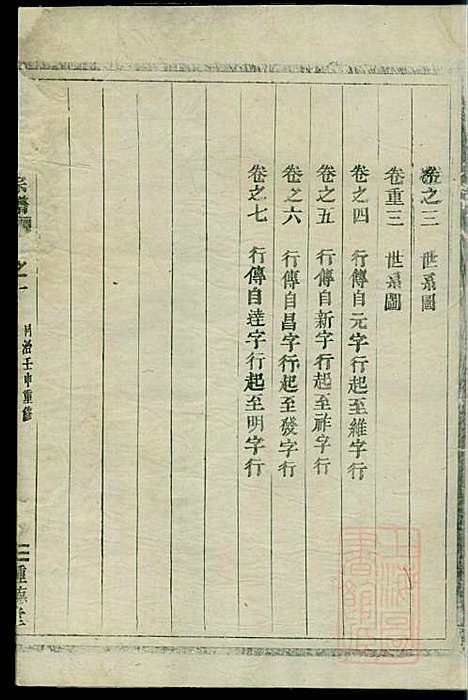 卷之三 世系圖
卷重三 世系圖
卷之四 行傳自元字行起至維字行
卷之五 行傳自新字行起至祚字行
卷之六 行傳自昌字行起至發字行
卷之七 行傳自達字行起至明字行
宗譜
之一
同治壬申重修
二